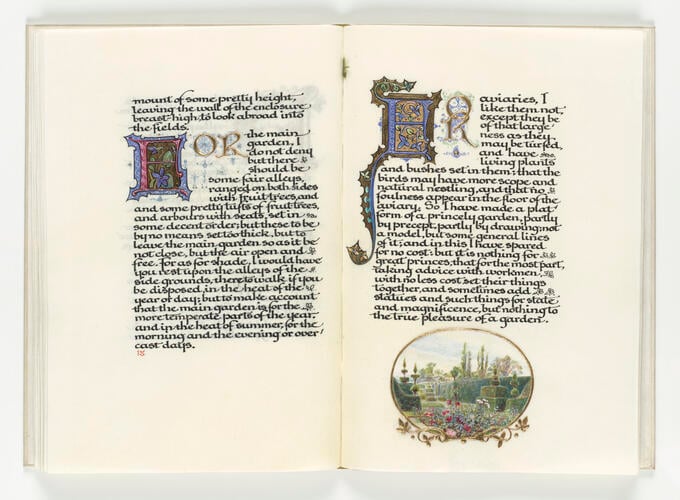 mount of some pretty height,
leaving the wall of the enclosure
breast-high, to look abroad into
the fields.
FOR the main
garden, I
do not deny
but there
should be
some fair alleys,
ranged on both sides
with fruit trees, and
and some pretty tufts of fruit trees,
and arbours with seats, set in
some decent order; but these to be
by no means set too thick, but to
leave the main garden so as it be
not close, but the air open and
free. for as for shade, I would have
you rest upon the alleys of the
side grounds, there to walk, if you
be disposed, in the heat of the
year or day; but to make account
that the main garden is for the
more temperate parts of the year,
and in the heat of summer, for the
morning and the evening or over
cast days.
18
FOR aviaries, I
like them not,
except they be
of that large
ness as they
may be turfed,
and have
living plants
and bushes set in them; that the
birds may have more scope and
natural nestling, and that no
foulness appear in the floor of the
aviary. So I have made a plat
form of a princely garden, partly
by precept, partly by drawing; not
a model, but some general lines
of it; and in this I have spared
for no cost: but it is nothing for
great princes, that for the most part,
taking advice with workmen,
with no less cost set their things
together, and sometimes add
statues and such things for state
and magnificence, but nothing to
the true pleasure of a garden.